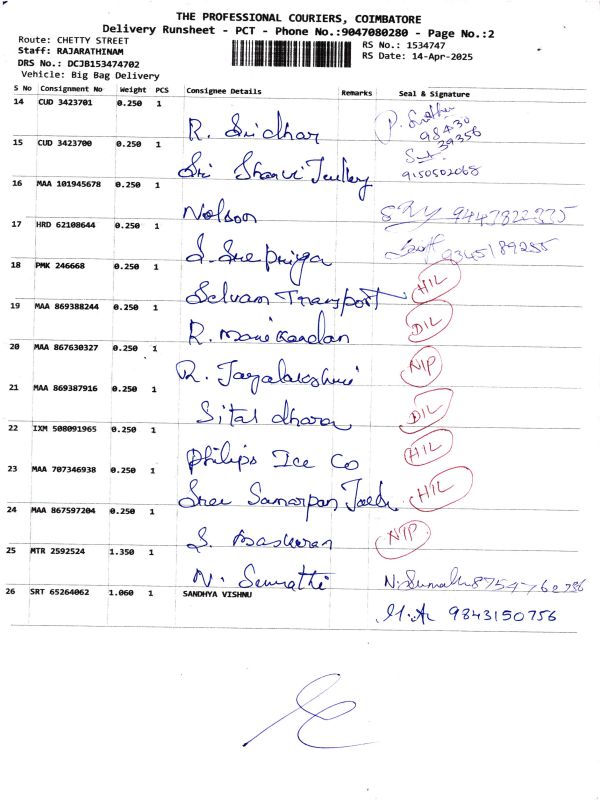 THE PROFESSIONAL COURIERS, COIMBATORE
Delivery Runsheet - PCT - Phone No.:9047080280 - Page No.:2
Route: CHETTY STREET
Staff: RAJARATHINAM
DRS No.: DCJB153474702
Vehicle: Big Bag Delivery
RS No.: 1534747
RS Date: 14-Apr-2025
S No Consignment No Weight PCS Consignee Details Remarks Seal & Signature
14 CUD 3423701 0.250 1 R. Sridhar 98430 39356
15 CUD 3423700 0.250 1 Sri 9150502068
16 MAA 101945678 0.250 1 Nolson
17 HRD 62108644 0.250 1 S. Sree priya
18 PMK 246668 0.250 1 Selvam Transport HIL
19 MAA 869388244 0.250 1 R. Manikandan DIL
20 MAA 867630327 0.250 1 R. Jayalakshmi NIP
21 MAA 869387916 0.250 1 Sital dhara DIL
22 IXM 508091965 0.250 1 Philips Ice Co HIL
23 MAA 707346938 0.250 1 Sree Samarpan HIL
24 MAA 867597204 0.250 1 S. Baskaran NIP
25 MTR 2592524 1.350 1 N. Sumathi N. Sumathi 8754762786
26 SRT 65264062 1.060 1 SANDHYA VISHNU 9843150756